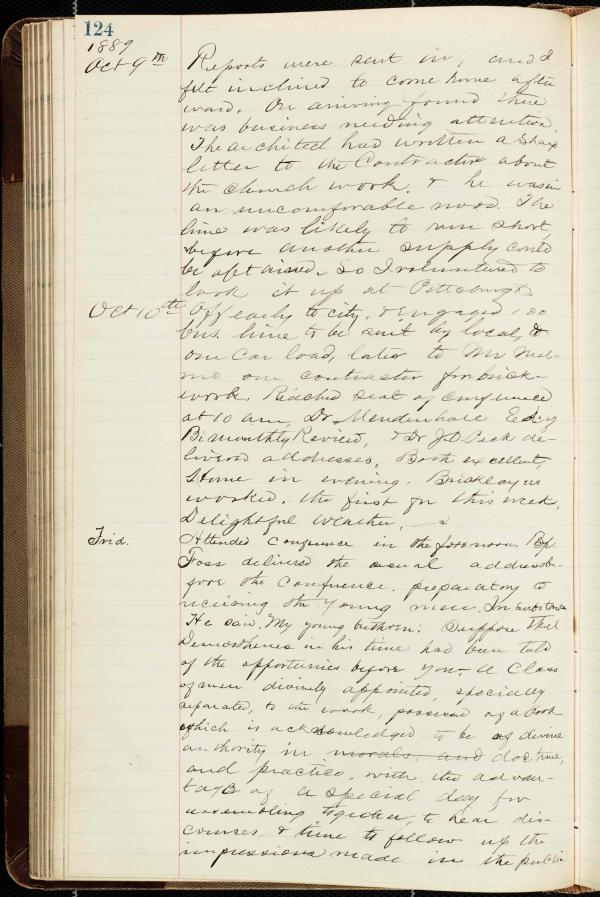 124
1889
Oct 9th Reports were sent in, and I
felt inclined to come home after
ward. On arriving found there
was business needing attention.
The architect had written a sharp
letter to the Contractor about
the church work, & he was in
an uncomfortable mood. The
lime was likely to run short,
before another supply could
be obtained. So I volunteered to
look it up at Pittsburgh.
Oct 10th Off early to city, & engaged 100
bus. lime to be sent by local, &
one car load, later to Mr
our contractor for brick-
work. Reached seat of conference
at 10 am. Dr. Mendenhall Ed. of
Bi monthly Review, & Dr J.O. Peck de-
livered addresses, Both excellent,
Home in evening. Bricklayers
worked, the first for this week,
Delightful weather,
Frid. Attended conference in the forenoon. Bp.
Foss delivered the usual address be-
fore the Conference, preparatory to
receiving the young men. In substance
He said. "My young brethren: Suppose that
Demosthenes in his time had been told
of the opportunies before you, a Class
of men divinely appointed, specially
separated, to the work, possessed of a book
which is acknowledged to be of divine
authority in morals, and doctrine,
and practice, with the advan-
tage of a special day for
assembling together, to hear dis-
courses, & time to follow up the
impressions made in the public